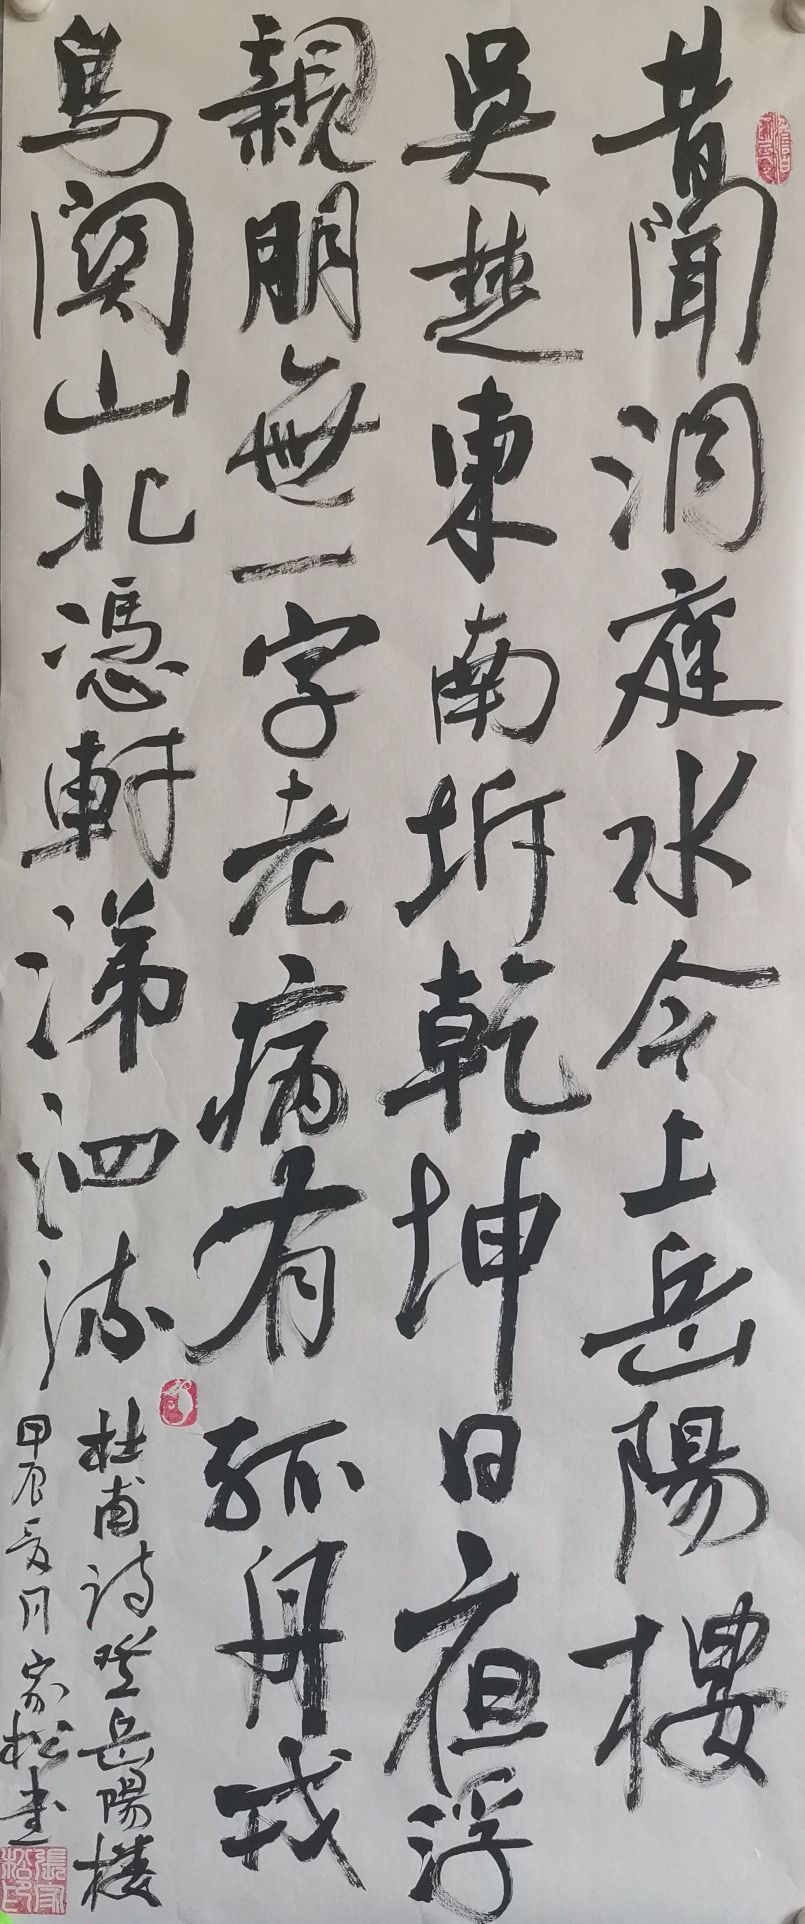 昔聞洞庭水今上岳陽樓
吳楚東南坼乾坤日夜浮
親朋無一字老病有孤舟戎
馬関山北憑軒涕泗流
杜甫詩登岳陽樓
甲辰夏月家松書
張家松印